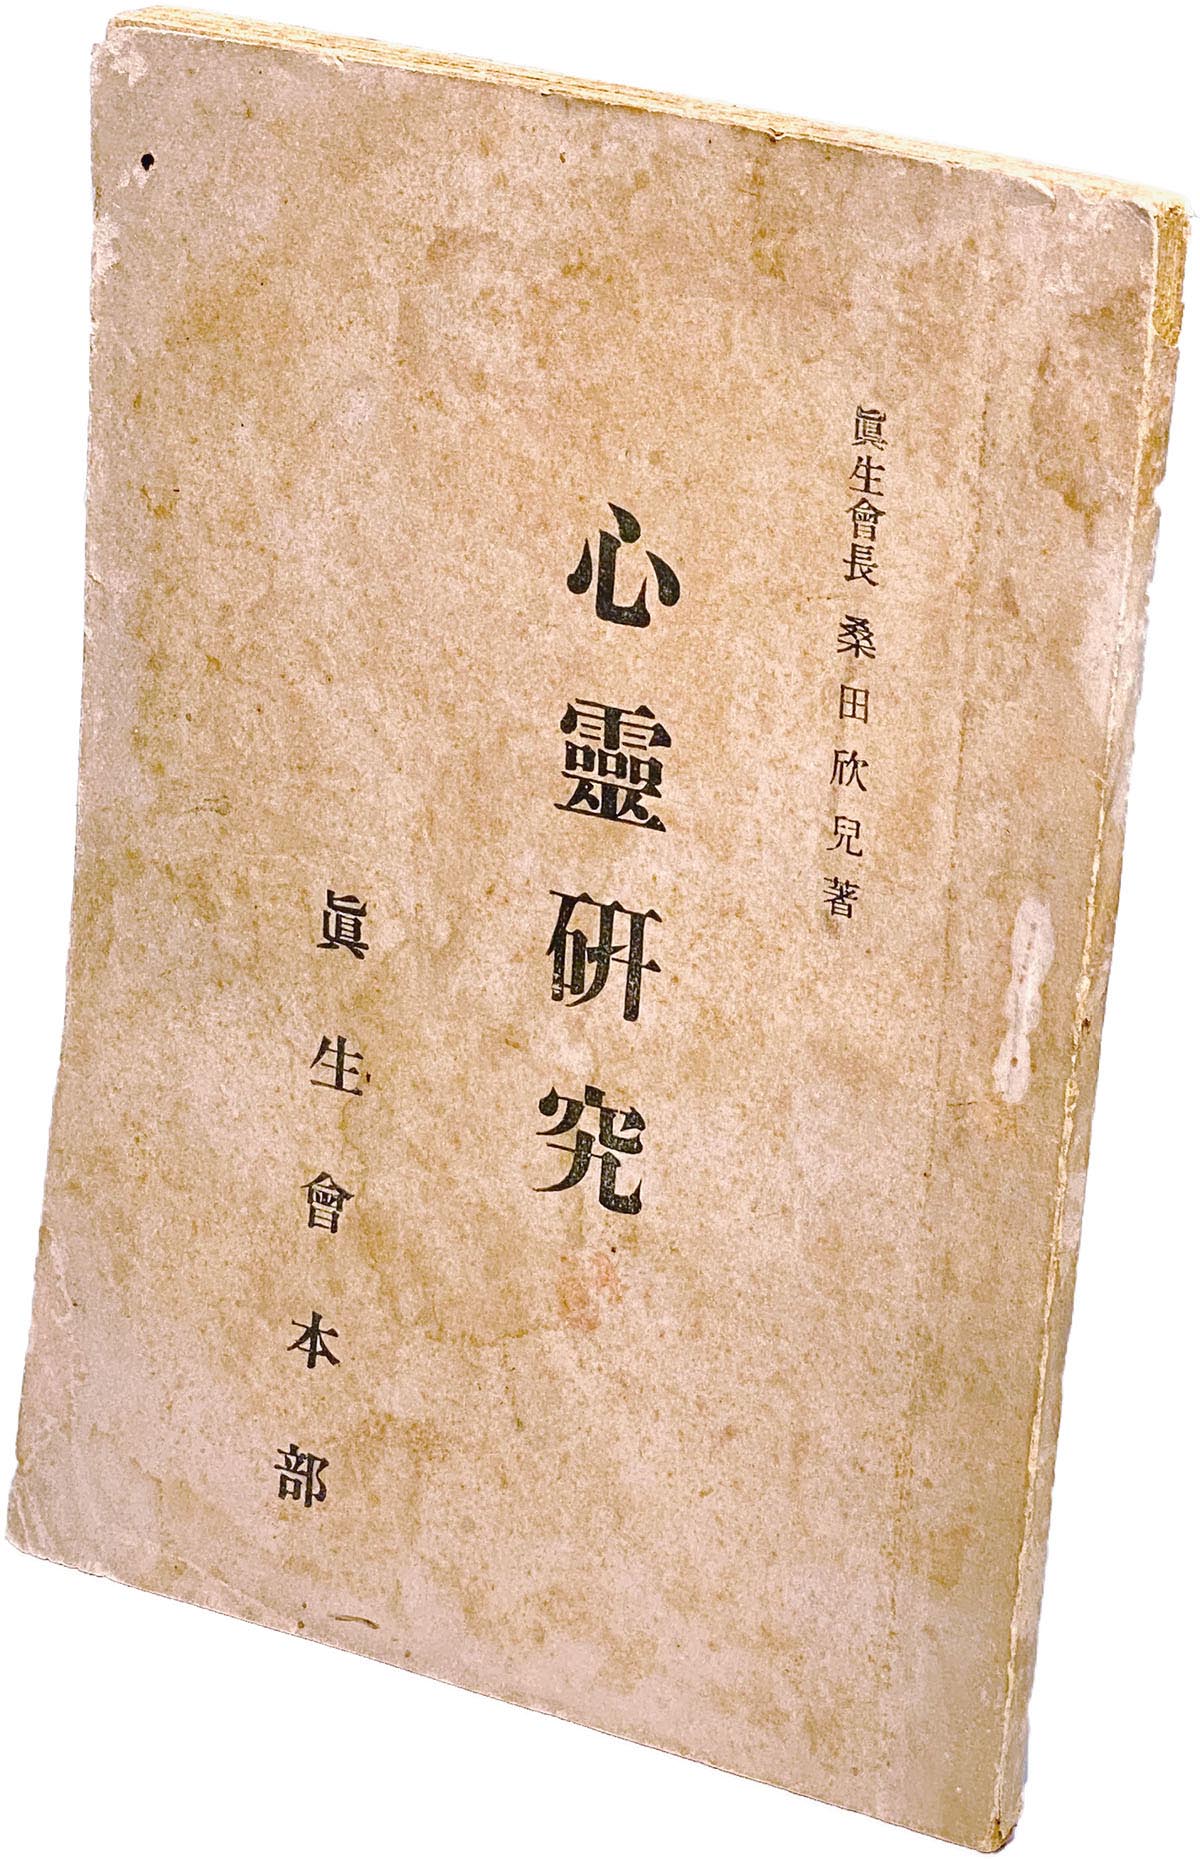 眞生會長 桑田欣兒著
心靈研究
眞生會本部